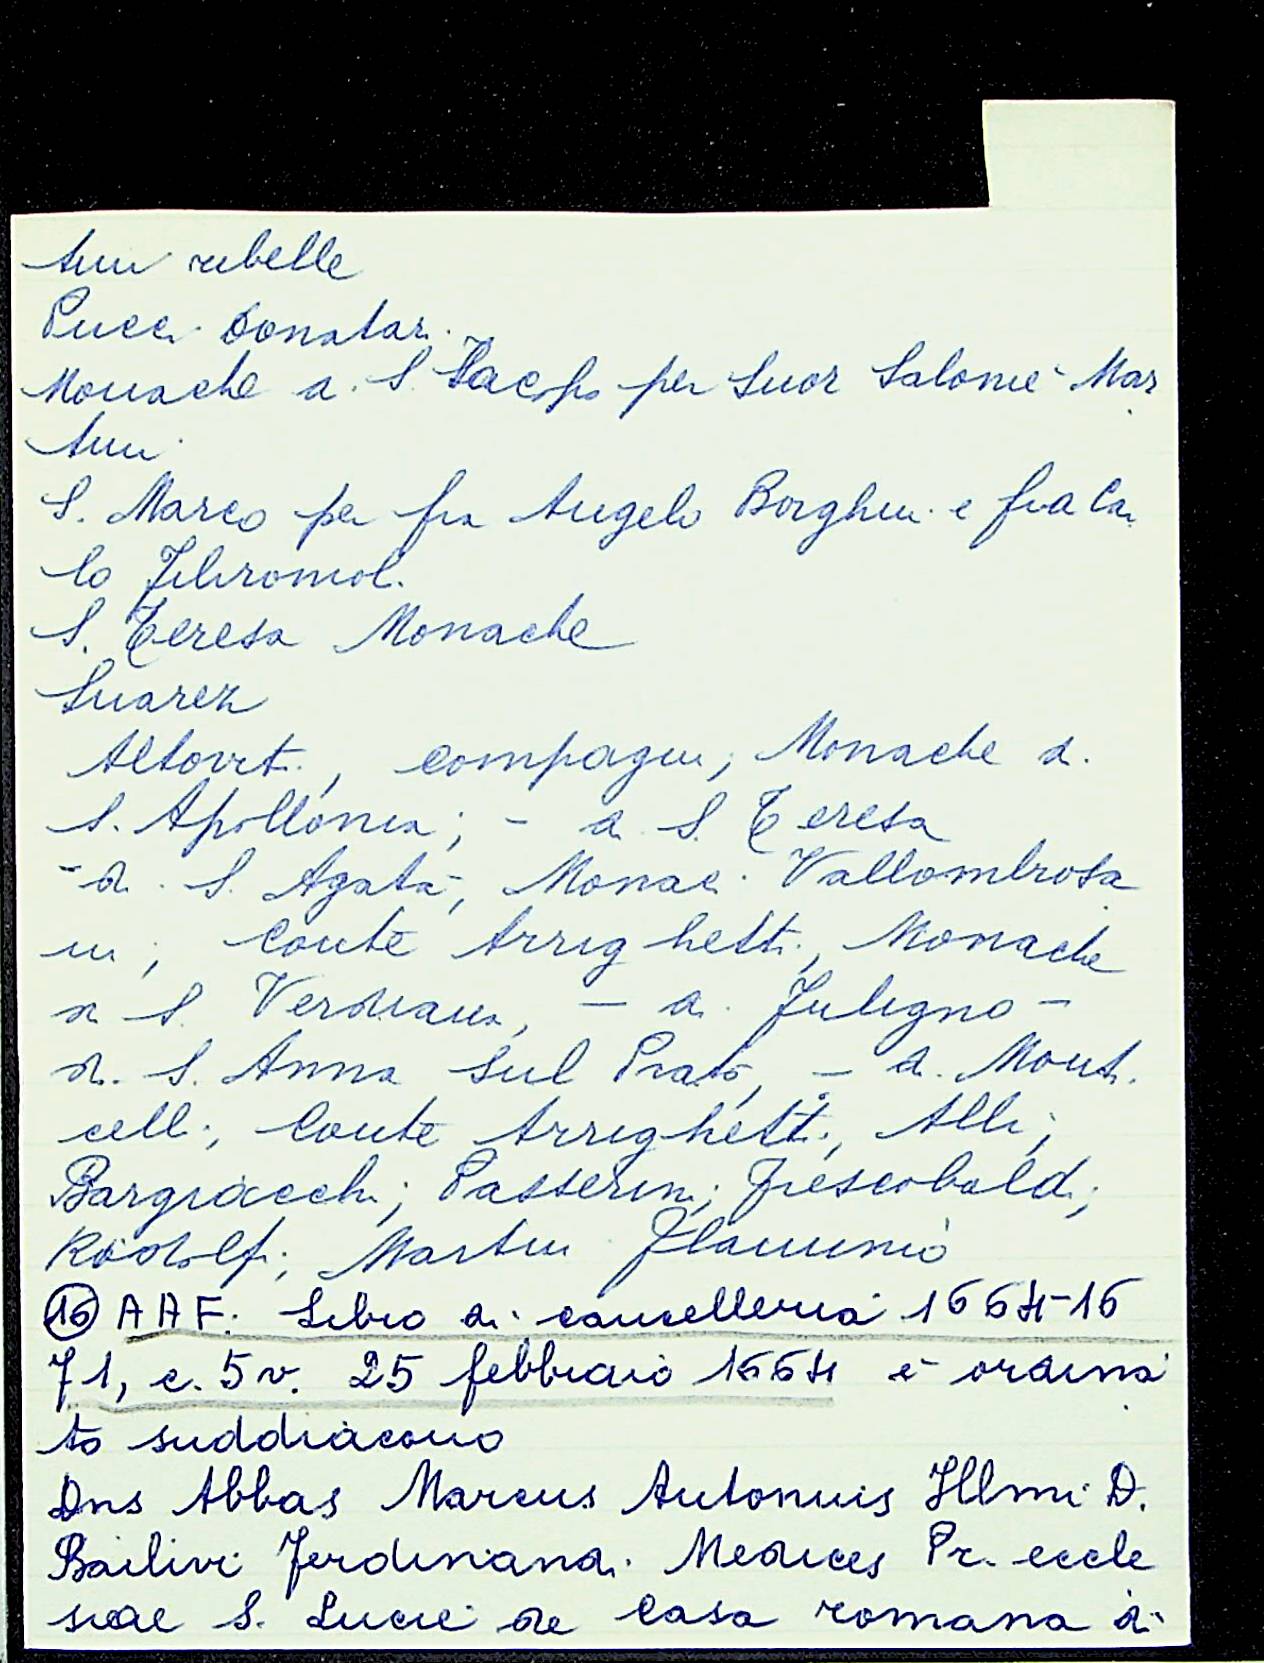 tini rubelle
Pucci donatari
Monache di S. Jacopo per Suor Salome Mar
tini
S. Marco per fra Angelo Borghini e fra Car
lo
S. Teresa Monache
Suarez
Altoviti, compagni; Monache di
S. Apollonia; - di S. Teresa
- di S. Agata, Monaci Vallombrosa
ni; Conte Arrighetti, Monache
di S. Verdiana, - di Fuligno -
di S. Anna sul Prato, - di Monti
celli, Conte Arrighetti, Alli;
Bargiacchi; Passerini; Frescobaldi;
Ridolfi; Martini Flaminio
(16) AAF. Libro di cancelleria 1664-16
71, c. 5v. 25 febbraio 1664 è ordina
to suddiacono
Dns Abbas Marcus Antonuis Illmi D.
Bailivi Ferdinandi Medices Pr. eccle
siae S. Lucie de Casa romana di